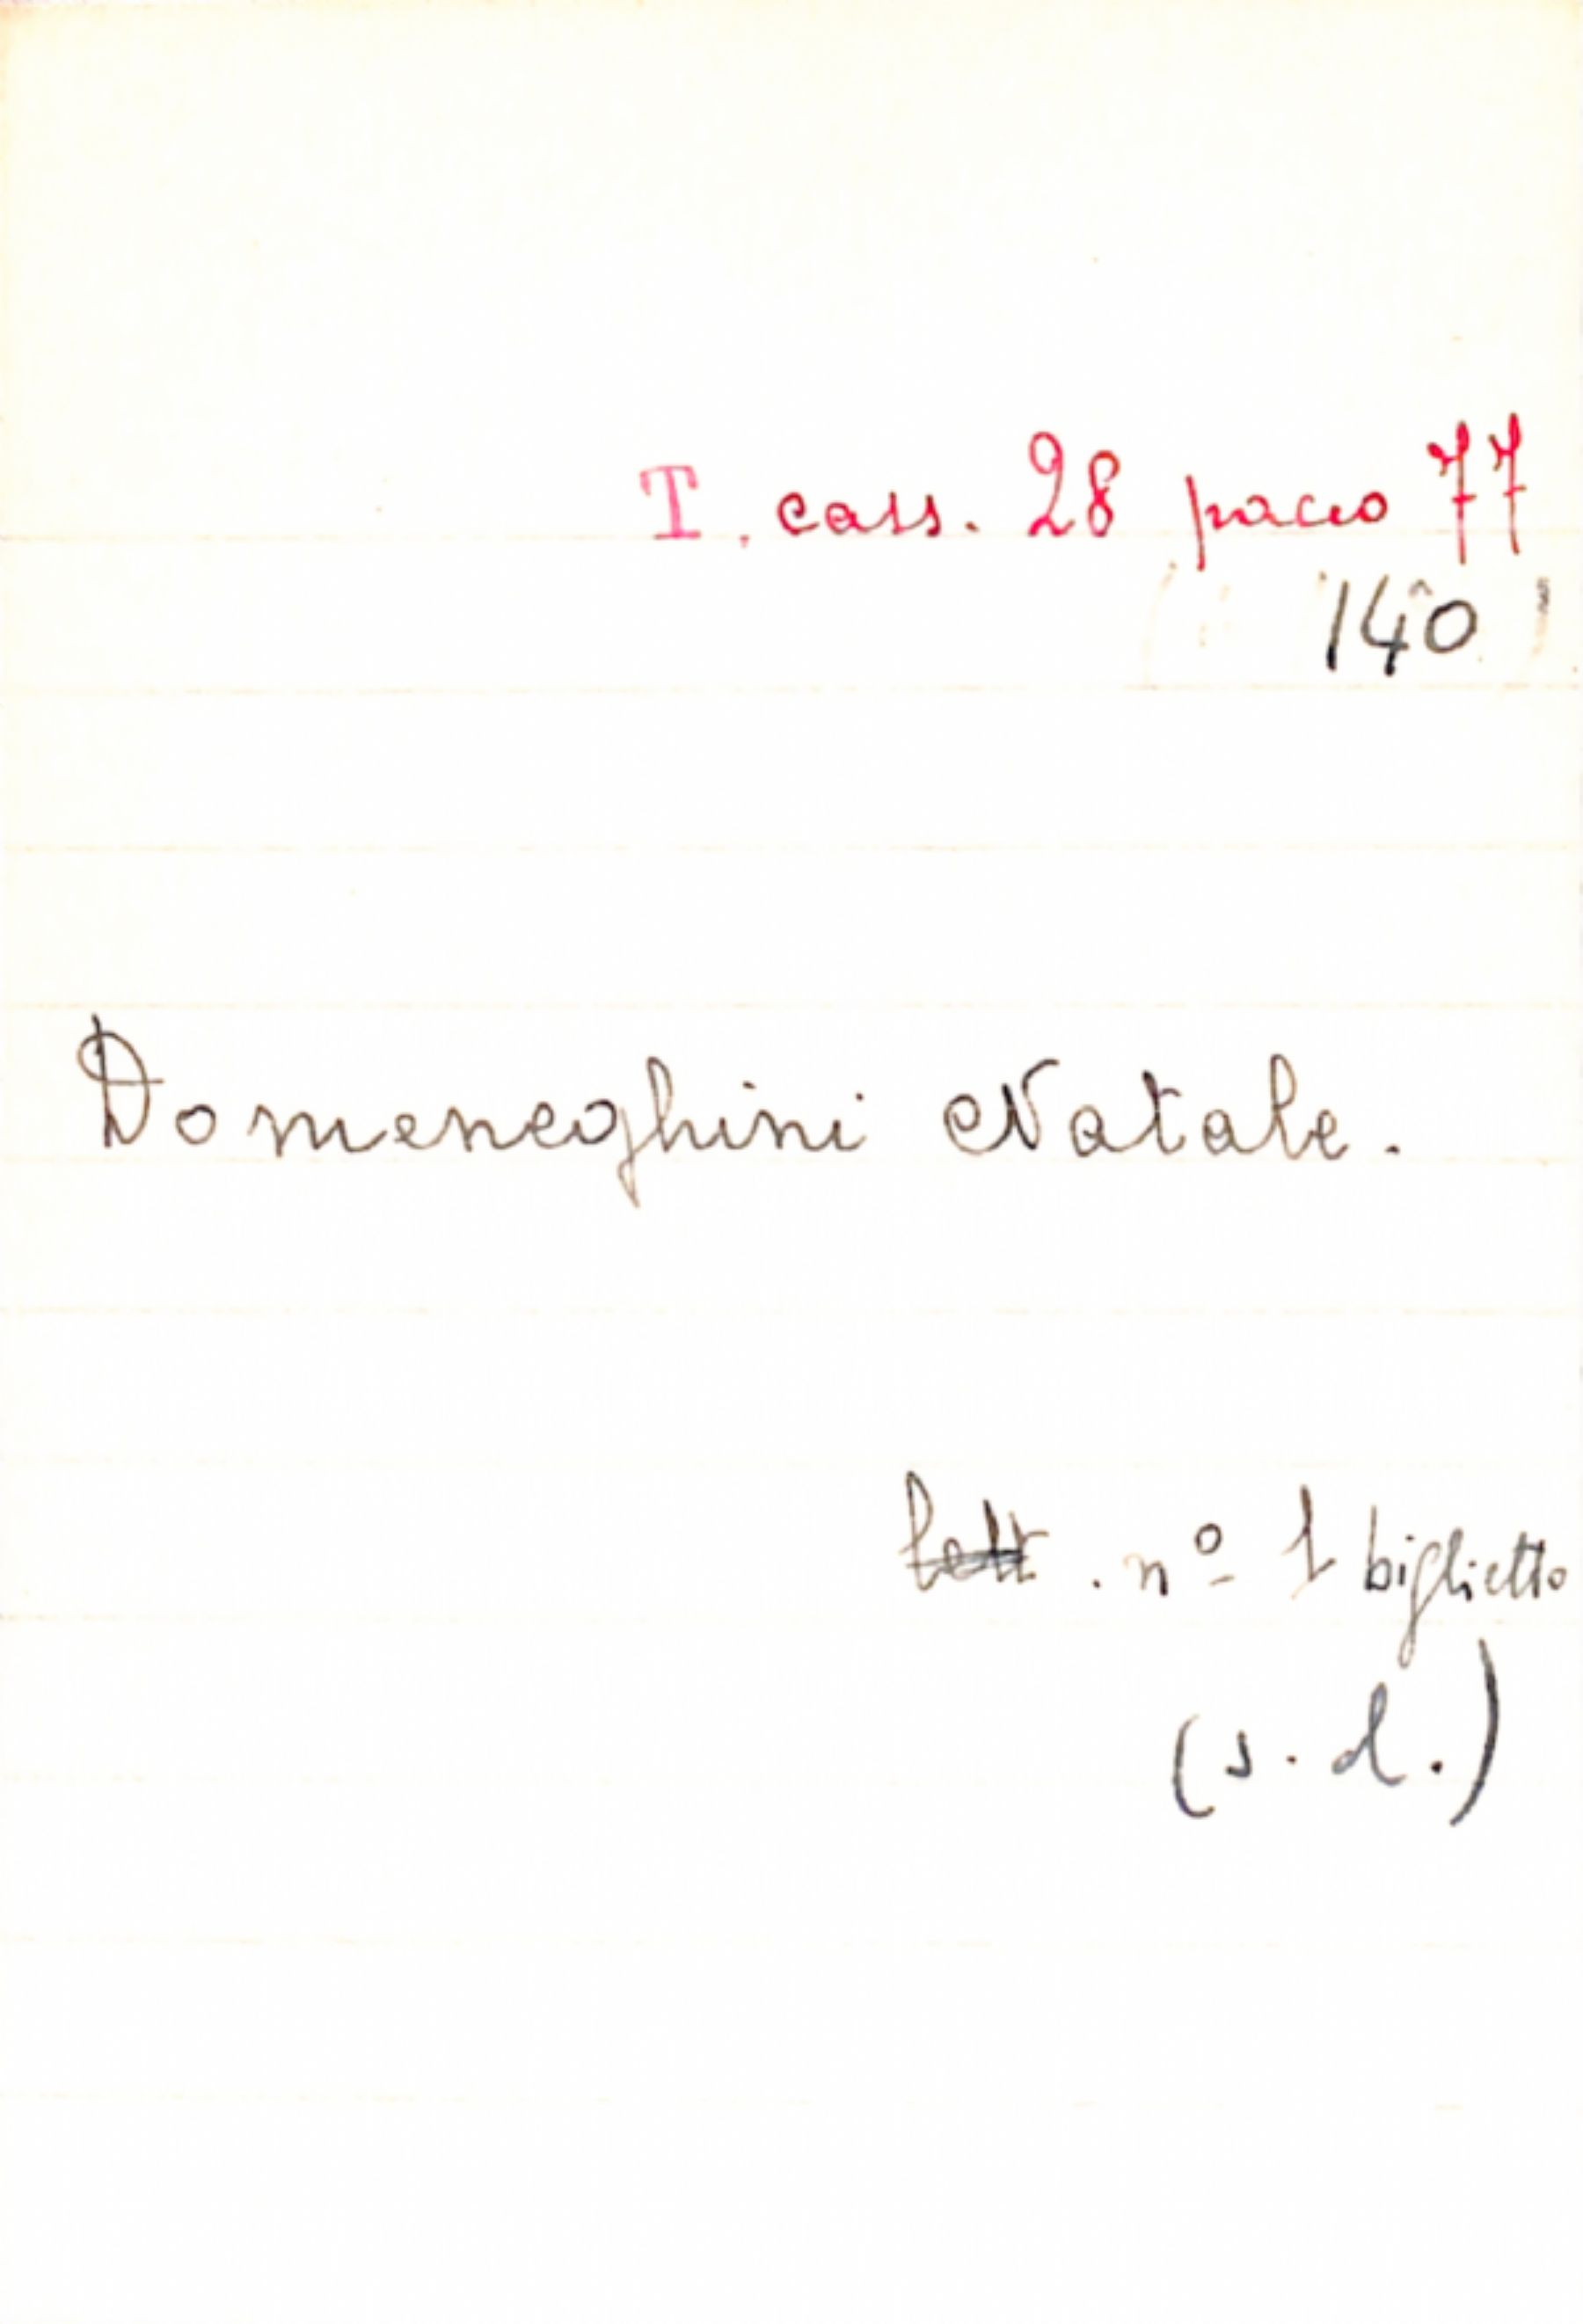 T. cass. 28 pacco 77
140
Domeneghini Natale.
lett. nº 1 biglietto
(s. d.)